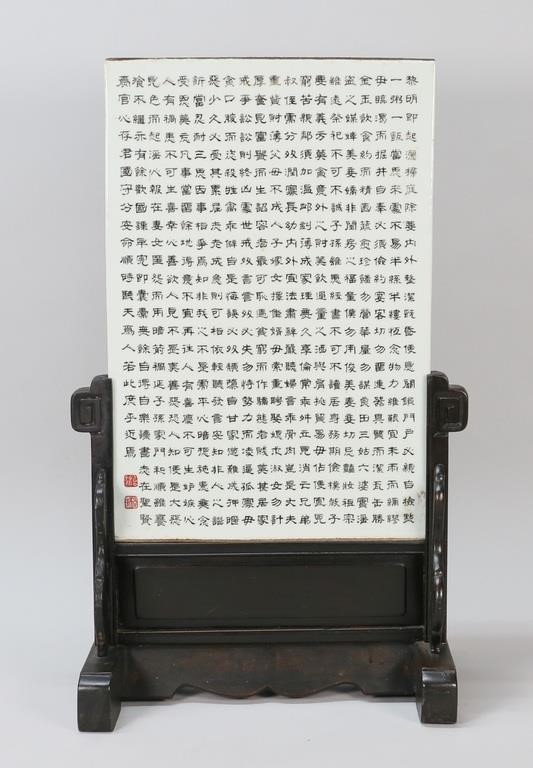 黎明即起灑掃庭除要內外整潔既昏便息關鎖門戶必親自檢點
一粥一飯當思來處不易半絲半縷恆念物力維艱宜未雨而綢繆
毋臨渴而掘井自奉必須儉約宴客切勿留連器具質而潔瓦缶勝
金玉飲食約而精園蔬愈珍饈勿營華屋勿謀良田三姑六婆實淫
盜之媒婢美妾嬌非閨房之福童僕勿用俊美妻妾切忌豔妝祖宗
雖遠祭祀不可不誠子孫雖愚經書不可不讀居身務期儉樸教子
要有義方莫貪意外之財莫飲過量之酒與肩挑貿易毋佔便宜見
窮苦親鄰須加溫卹刻薄成家理無久享倫常乖舛立見消亡兄弟
叔侄需分多潤寡長幼內外宜法肅辭嚴聽婦言乖骨肉豈是丈夫
重貲財薄父母不成人子嫁女擇佳婿毋索重聘娶媳求淑女勿計
厚奩見富貴而生諂容者最可恥遇貧窮而作驕態者賤莫甚居家
戒爭訟訟則終凶處世戒多言言多必失勿恃勢力而凌逼孤寡毋
貪口腹而恣殺牲禽乖僻自是悔誤必多頹惰自甘家道難成狎暱
惡少久必受其累屈志老成急則可相依輕聽發言安知非人之譖
訴當忍耐三思因事相爭焉知非我之不是需平心暗想施惠無念
受恩莫忘凡事當留餘地得意不宜再往人有喜慶不可生妒嫉心
人有禍患不可生喜幸心善欲人見不是真善惡恐人知便是大惡
見色而起淫心報在妻女匿怨而用暗箭禍延子孫家門和順雖饔
飧不繼亦有餘歡國課早完即囊橐無餘自得自樂讀書志在聖賢
爲官心存君國守分安命順時聽天爲人若此庶乎近焉